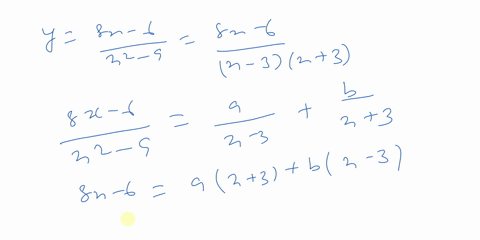 y = 8x-6 / x²-9 = 8x-6 / (x-3)(x+3)
8x-6 / x²-9 = a / x-3 + b / x+3
8x-6 = a(x+3) + b(x-3)